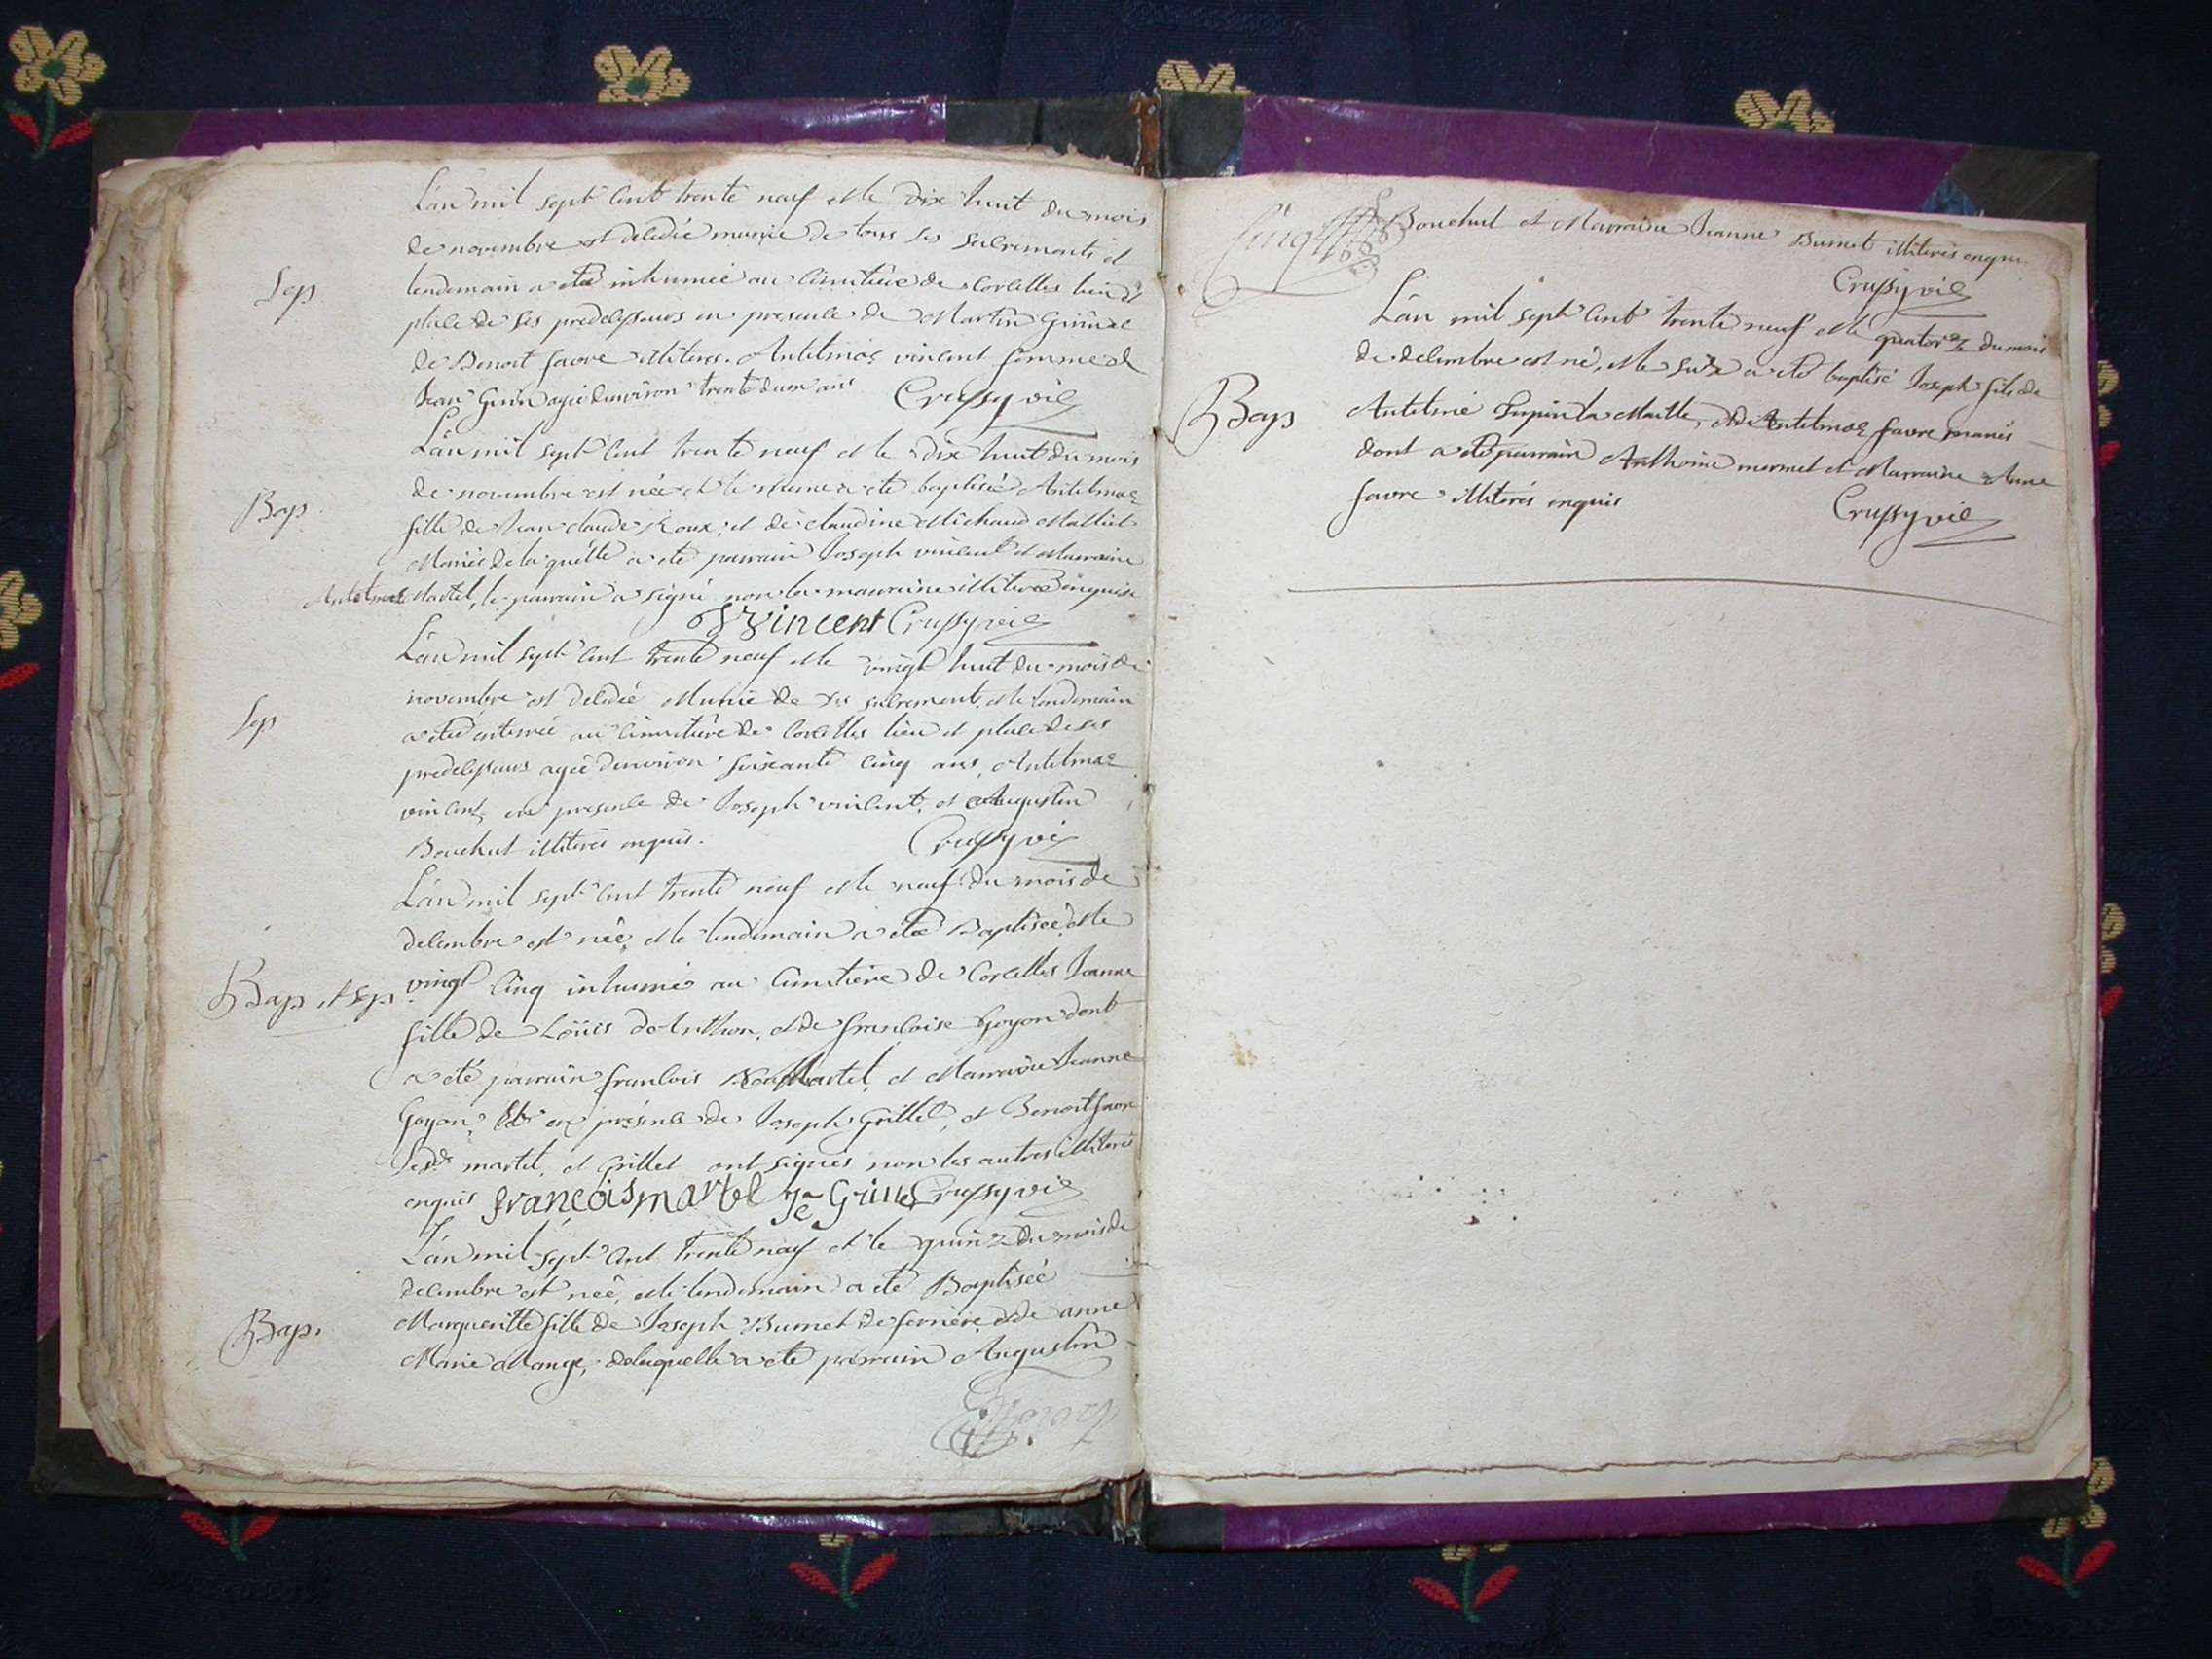 L'an mil sept cent trente neuf et le dix huit du mois
de novembre est decedée munie de tous ses sacrements et
Sep
lendemain a eté inhumée au cimitiere de Corcelles lieu et
place de ses predecesseurs en presence de Martin
de Benoit favre illiteres. Antelmae vincent femme de
Jean agée d'environ trente deux ans Crussy vic
L'an mil sept cent trente neuf et le dix huit du mois
de novembre est née et le meme a eté baptisée Antelmae
Bap
fille de Jean claude Roux, et de claudine Michaud
Mariés de laquelle a eté parrain Joseph vincent et Marraine
Antelmae Martel, le parrain a signé non la marraine illiterée enquise
Vincent Crussy vic
L'an mil sept cent trente neuf et le vingt huit du mois de
novembre est decedée Munie de ses sacrement, et le lendemain
Sep
a eté enterrée au cimitiere de Corcelles lieu et place de ses
predecesseurs agée d'environ soixante cinq ans, Antelmae
vincent, en presence de Joseph vincent, et Augustin
Bouchut illiterés enquis. Crussy vic
L'an mil sept cent trente neuf et le neuf du mois de
decembre est née, et le lendemain a eté Baptisée, et le
Bap et Sep
vingt cinq inhumée au cimitiere de Corcelles Jeanne
fille de Loüis de Anthon, et de francoise Goyon dont
a eté parrain francois Martel, et Marraine Jeanne
Goyon, en présence de Joseph Grillet, et Benoit favre
Lesds martel, et Grillet ont signés non les autres illiterés
enquis francois martel Crussy vic
L'an mil sept cent trente neuf et le quinze du mois de
decembre est née, et le lendemain a eté Baptisée
Bap.
Margueritte fille de Joseph Burnet de ferriere, et de anne
Marie Mange, de laquelle a eté parrain Augustin
Cinq
Bouchut et Marraine Jeanne Burnet illiterés enquis
Crussy vic
L'an mil sept cent trente neuf et le quatorze du mois
de decembre est né, et le seize a eté baptisé Joseph fils de
Bap
Antelme Lupin la Maille, et de Antelmae favre mariés
dont a eté parrain Anthoine mermet et Marraine Anne
favre illiterés enquis Crussy vic